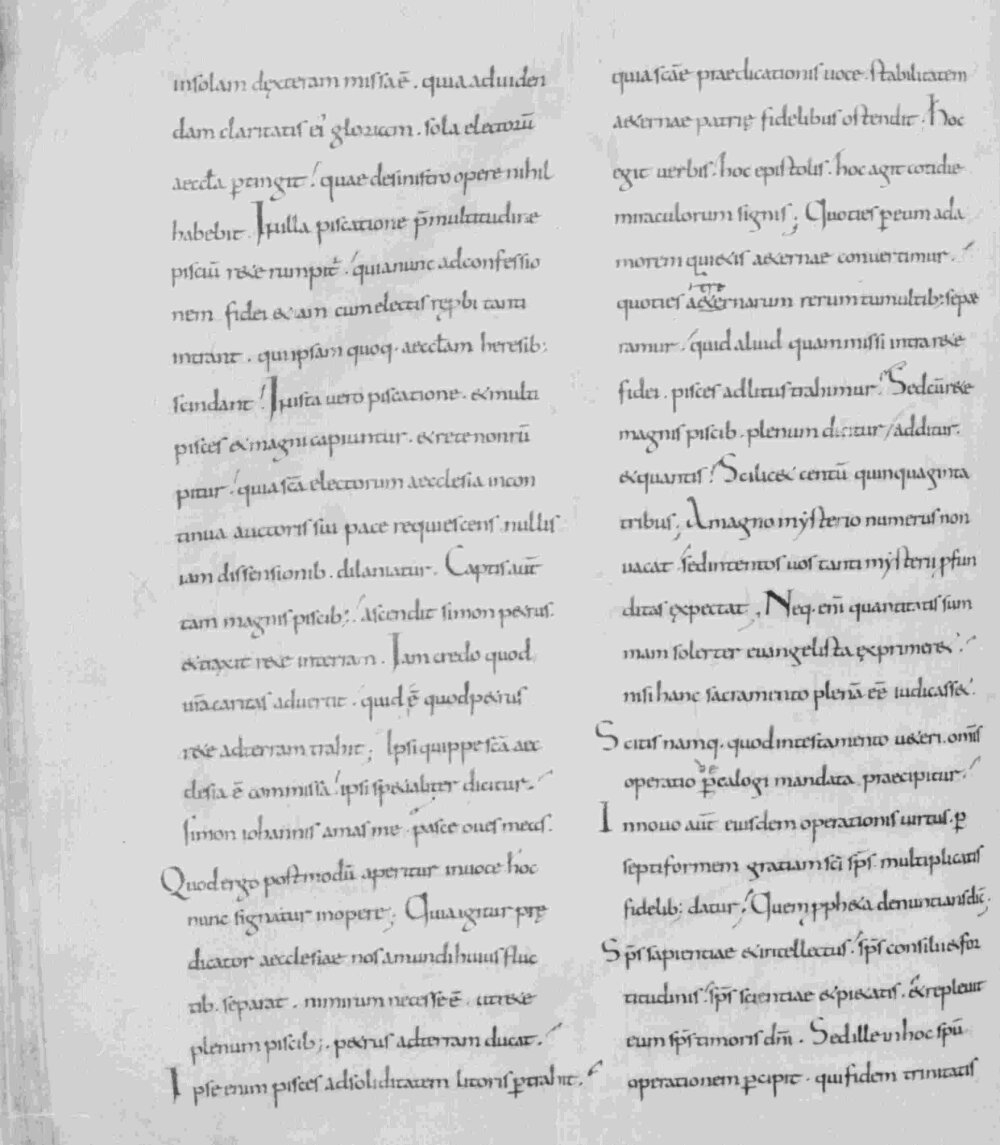 insolam dęxteram missa ē. quia aduiden
dam claritatis ei' gloriam. sola electorū
aeccła ꝑtingit. quae desinistro opere nihil
habebit. Inilla piscatione p̄multitudine
pisciū rete rumpit̄. quianunc adconfessio
nem fidei &iam cumelectis repbi tanti
intrant. quiipsam quoq. aeccłam heresib;
scindant. Inista uero piscatione. &multi
pisces &magni capiuntur. &rete nonrū
pitur. quia sc̄a electorum aecclesia incon
tinua auctoris sui pace requiescens. nullis
iam dissensionib. dilaniatur. Captis aūt
tam magnis piscib;. ascendit simon p&rus.
&traxit r&e interram. Iam credo quod
ur̄a caritas aduertit. quid ē quodp&rus
r&e adterram trahit; Ipsi quippe sc̄a aec
clesia ē commissa. ipsi specialiter dicitur.
simon iohannis amas me. pasce oues meas.
Quod ergo postmodū aperitur inuoce hoc
nunc signatur inopere; Quia igitur prę
dicator aecclesiae nos amundi huius fluc
tib. separat. nimirum necesse ē. utr&e
plenum piscib;. p&rus adterram ducat.
Ipse enim pisces adsoliditatem litoris ꝑtrahit.
quia scāe praedicationis uoce. stabilitatem
a&ernae patrię fidelibus ostendit. hoc
egit uerbis. hoc epistolis. hoc agit cotidie
miraculorum signis; Quoties ꝑeum ada
morem qui&is a&ernae conuertimur.
quoties a&ernarum rerum tumultib; sepa
ramur. quid aliud quam missi intra r&e
fidei. pisces adlitus trahimur. Sedcūr&e
magnis piscib. plenum dicitur / additur.
&quantis. Scilic& centū quinquaginta
tribus; Amagno mẏsterio numerus non
uacat. sedintentos uos tanti mẏsterii pfun
ditas ęxpectat. Neq. eni quantitatis sum
mam solerter euangelista ęxprimer&.
nisi hanc sacramento plenā eē iudicass&.
Scitis namq. quod intestamento u&eri. om̄is
operatio ꝑ decalogi mandata praecipitur.
Innouo aūt eiusdem operationis uirtus. ꝑ
septiformem gratiam sc̄i sp̄s. multiplicatis
fidelib; datur. Quem pph&a denuntians dic̄.
Sp̄s sapientiae &intellectus. sp̄s consilii &for
titudinis. sp̄s scientiae &pi&atis. &repleuit
eum sp̄s timoris dn̄i. Sed ille inhoc spū
operationem ꝑcipit. qui fidem trinitatis